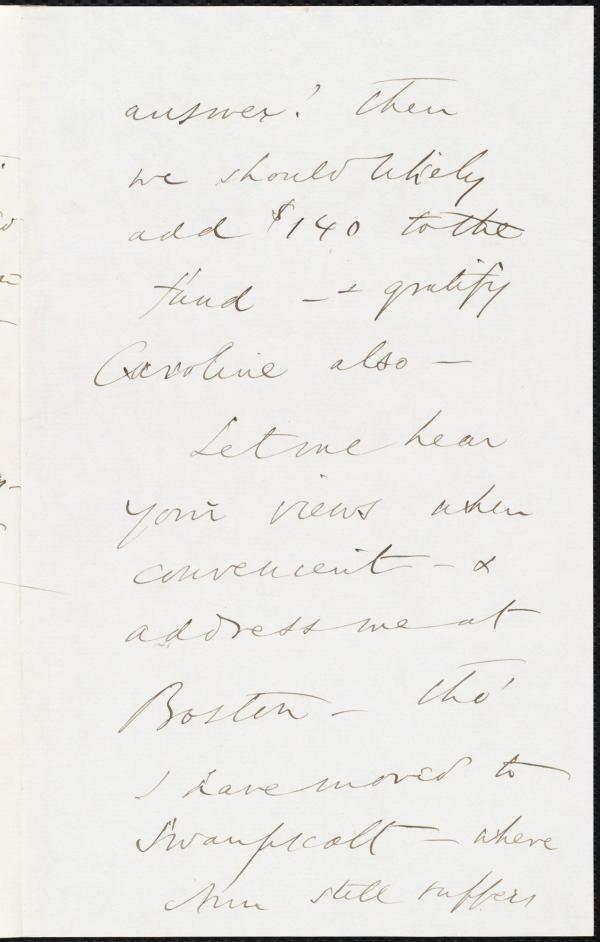 answer? Then
we should likely
add $140 to the
fund — & gratify
Caroline also —
Let me hear
your views when
convenient — &
address me at
Boston — tho'
I have moved to
Swampscott — where
Ann still suffers